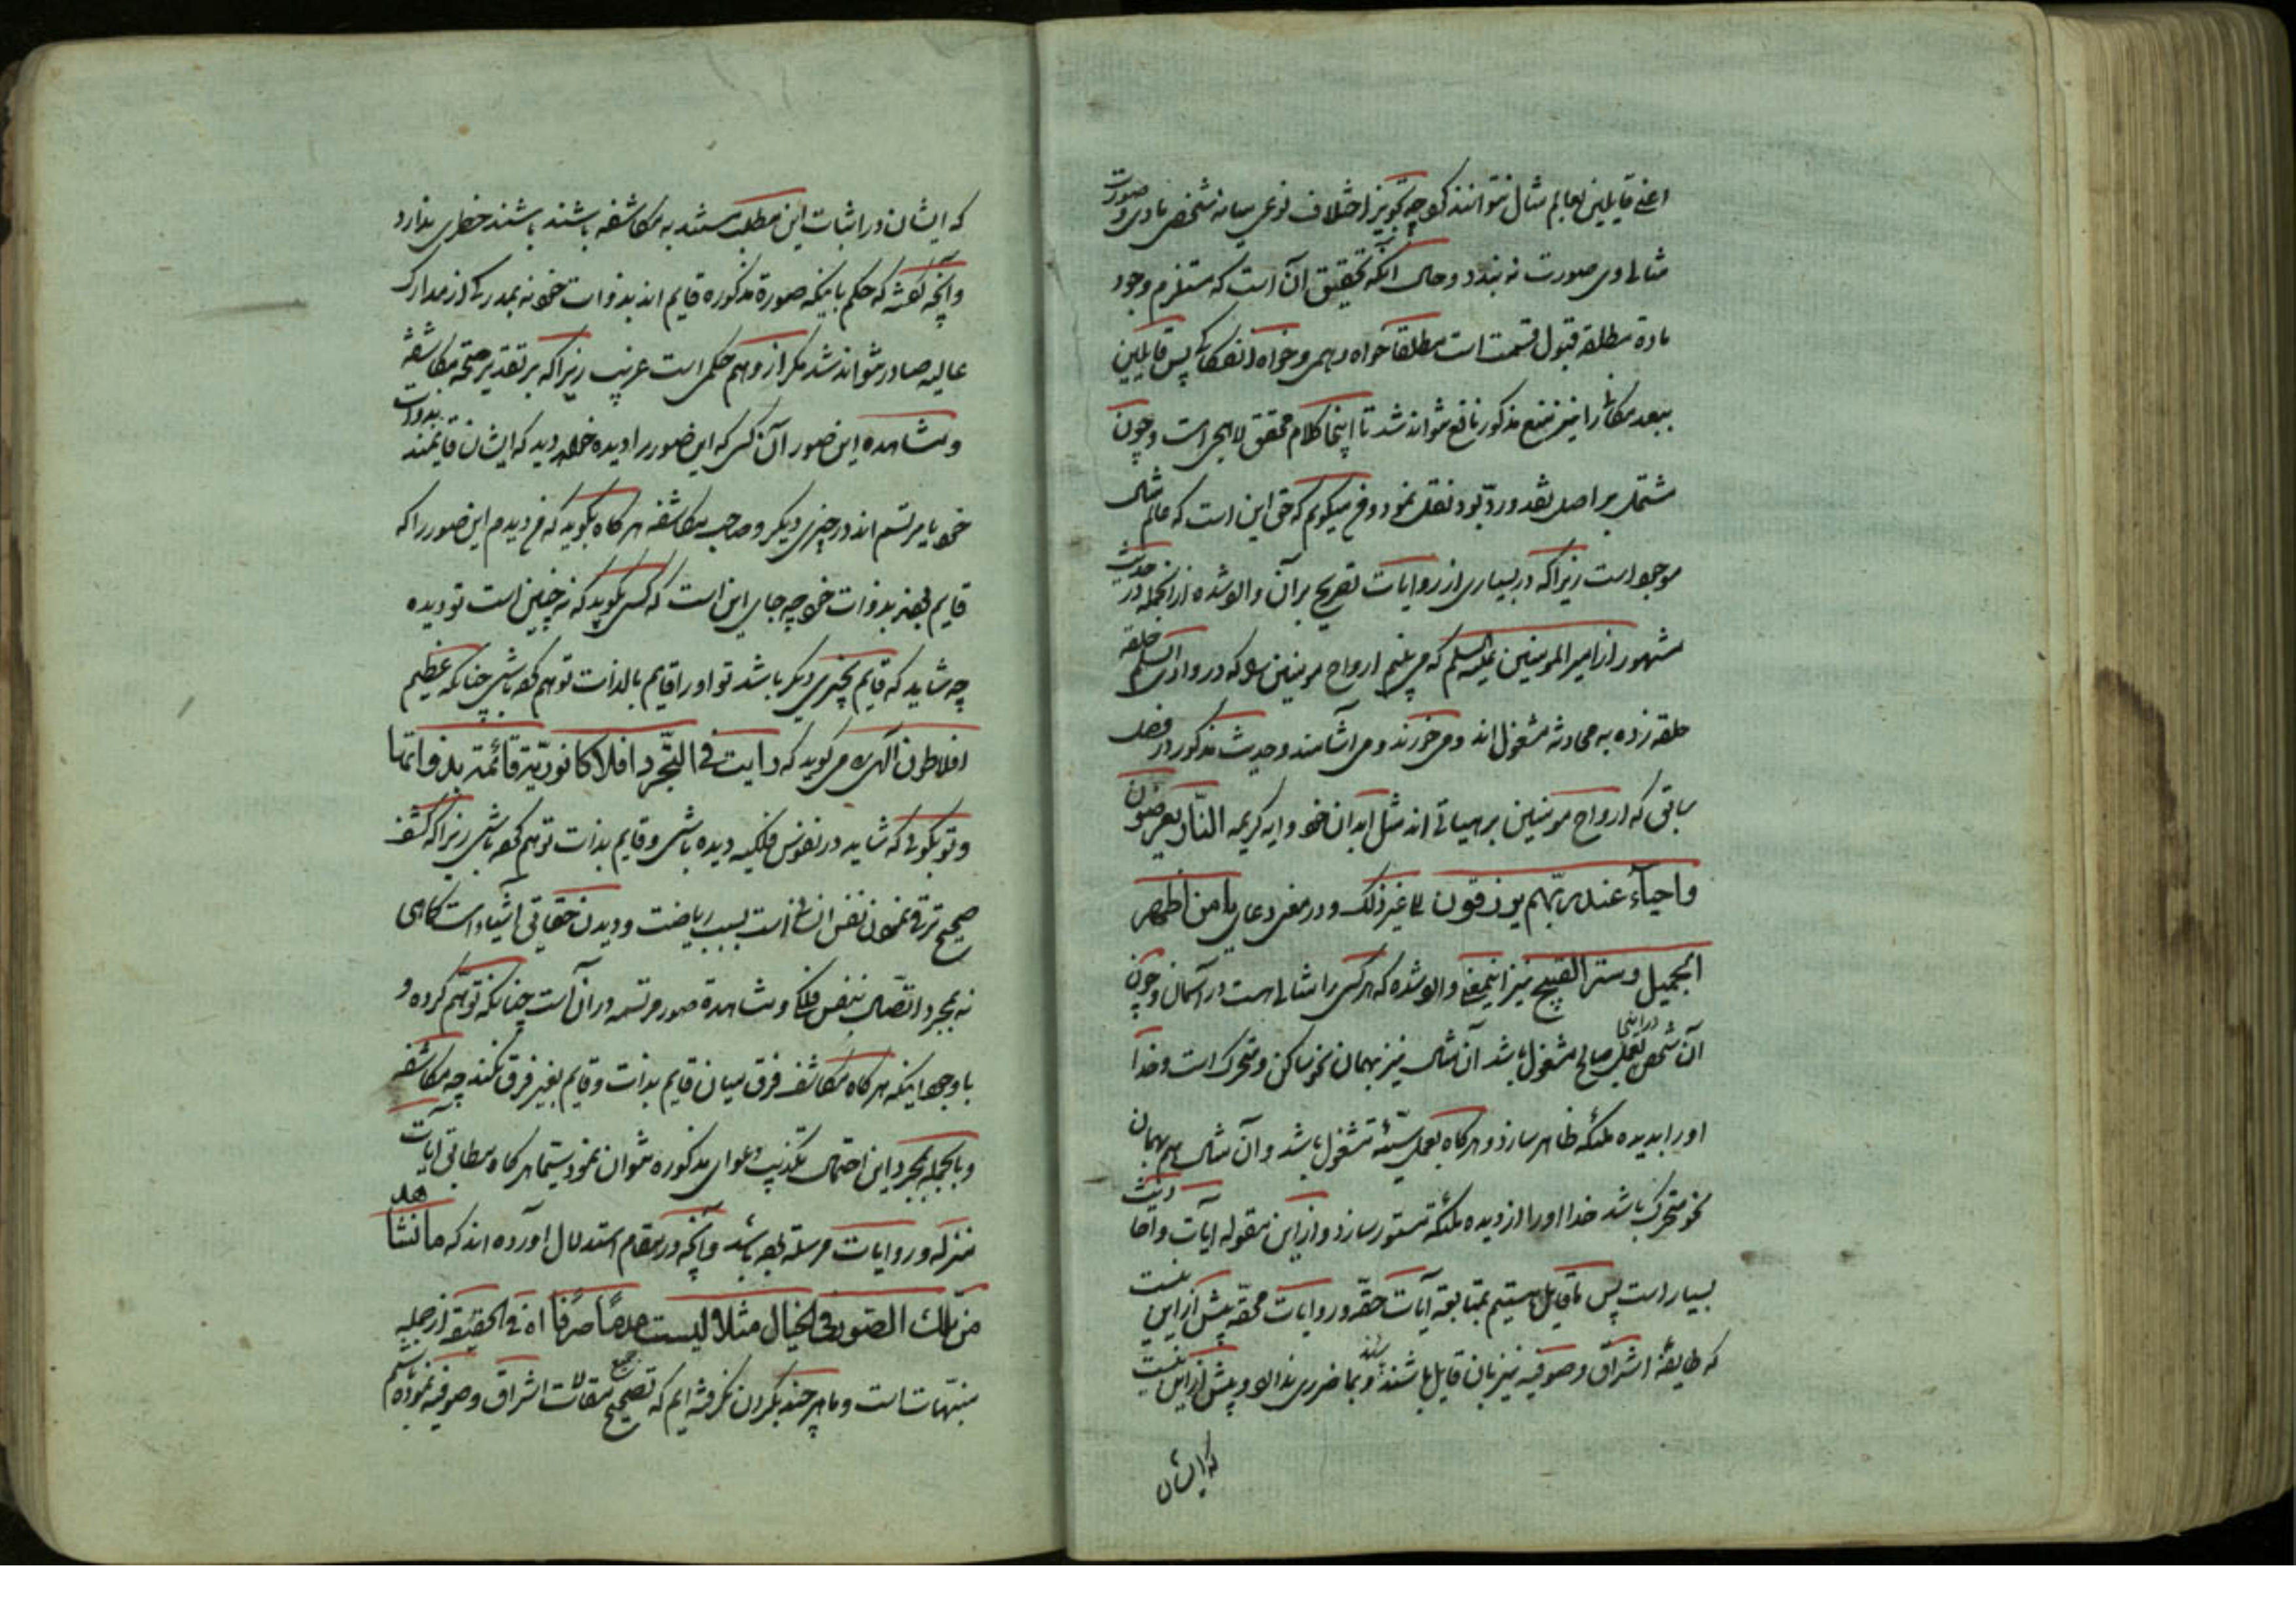 اعنی قایلین بعالم مثال نتوانند کرد چه تجویز اختلاف نوعی میانه شخص مادی و صورت
مثالی وی صورت نه بندد و حال آنکه تحقیق آن است که مستلزم وجود
ماده مطلقه قبول قسمت است مطلقا خواه وهمی و خواه انفکاکی پس قایلین
ببعد مکانی را نیز منع مذکور نافع نتواند شد تا اینجا کلام محقق لاهیجی است و چون
مشتمل بر اصل نقد و رد بود نقل نمود و ق میگویم که حق این است که عالم مثال
موجود است زیرا که در بسیاری از روایات تصریح بر آن وارد شده از آنجمله در حدیث
مشهور از امیر المومنین علیه السلم که می بینم ارواح مومنین را که در وادی السلم حلقه
حلقه زده به محادثه مشغول اند و می خورند و می آشامند و حدیث مذکور در فصل
سابق که ارواح مومنین بر هیاتی اند مثل ابدان خود و ایه کریمه النار یعرضون
و احیآء عند ربهم یرزقون الی غیر ذلک و در معنی دعای یا من اظهر
الجمیل و ستر القبیح نیز اینمعنی وارد شده که هر کسی را مثالی است در آسمان و چون
آن شخص در اینجا بعمل صالح مشغول باشد آن مثال نیز بهمان نحو ساکن و متحرک است و خدا
او را بدیده ملئکه ظاهر سازد و هر کاه بعمل سیئه مشغول باشد و آن مثال هم بهمان
نحو متحرک باشد خدا او را از دیده ملئکه مستور سازد و از این مقوله ایات و احادیث
بسیار است پس ما قایل هستیم بمتابعه آیات حقه و روایات محقه بیش از این نیست
که طایفه اشراق و صوفیه نیز بان قایل باشند باشند و بما ضرری ندارد و بیش از این نیست
که ایشان
که ایشان در اثبات این مطلب مستند به مکاشفه باشند باشند خطری ندارد
و آنچه گفته که حکم باینکه صورة مذکوره قایم اند بذوات خود نه بمدرکی از مدارک
عالیه صادر نتواند شد مکر از وهم حکمی است غریب زیرا که بر تقدیر صحة مکاشفه
و مشاهده این صور آن کس که این صور را دیده خواهد دید که ایشان قایمند بذوات
خود یا مرتسم اند در چیزی دیکر و صاحب مکاشفه هر کاه بکوید که من دیدم این صور را که
قایم بودند بذوات خود چه جای این است که کسی بکوید که نه چنین است تو دیده
چه شاید که قایم بچیزی دیکر باشد تو او را قایم بالذات توهم کرده باشی چنانکه عظیم
افلاطون الهی می گوید که رایت فی التجرد افلاکا نوریة قائمة بذواتها
و تو بکوئی که شاید در نفوس فلکیه دیده باشی و قایم بذات توهم کرده باشی زیرا که کشف
صحیح ترقی نمودن نفس انسانی است بسبب ریاضت و دیدن حقایق اشیاء است کماهی
نه بمجرد اتصال بنفس فلکی و مشاهدة صور مرتسمه در آن است چنانکه توهم کرده و
با وجود اینکه هر کاه مکاشف فرق میان قایم بذات و قایم بغیر فرق نکند چه مکاشفه
و بالجمله بمجرد این احتمال تکذیب دعوای مذکوره نتوان نمود سیما هر کاه مطابق آیات
منزله و روایات مرسله بوده باشد و آنچه در مقام استدلال اورده اند که ما نشاهد
من تلک الصور فی الخیال مثلا لیست عدما صرفا اه فی الحقیقه از جمله
منبهات است و ما هر چند بکردن نکرفته ایم که تصحیح جمیع مقالات اشراق و صوفیه نموده باشیم